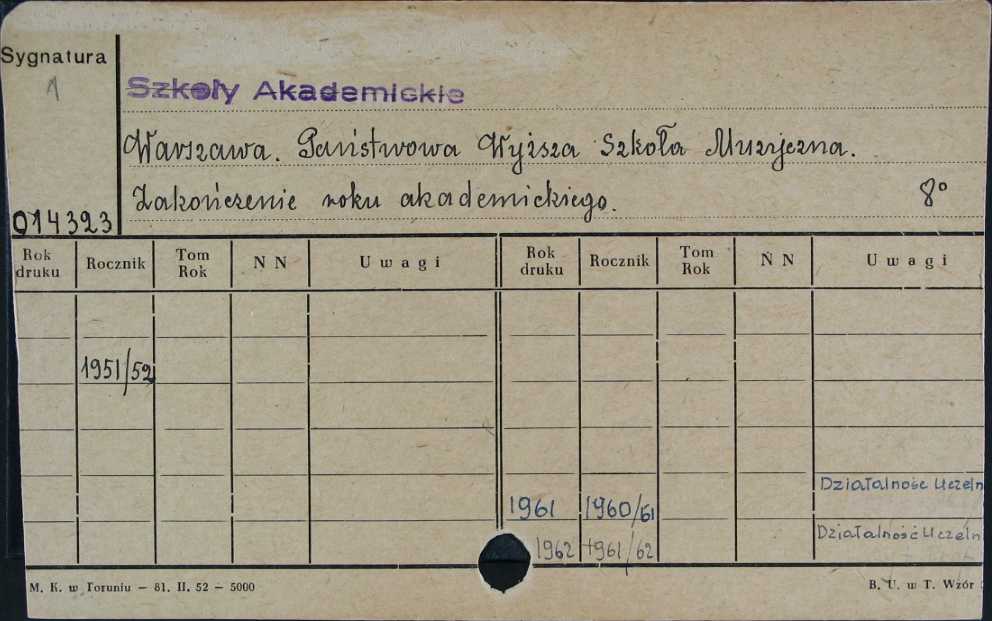 Sygnatura
1
Szkoły Akademickie
Warszawa. Państwowa Wyższa Szkoła Muzyczna.
Zakończenie roku akademickiego. 8°
014323
Rok druku Rocznik Tom Rok N N Uwagi Rok druku Rocznik Tom Rok N N Uwagi
1951/52
Działalność Uczeln
1961 1960/61
Działalność Uczeln
1962 +961/62
M. K. w Toruniu — 81. II. 52 — 5000 B. U. w T. Wzór